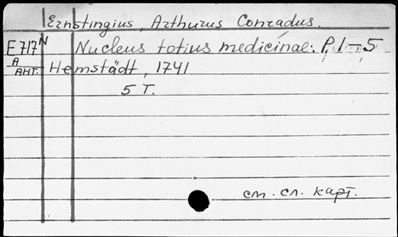 Ernstingius, Arthurus Conradus.
E717N Nucleus totius medicinae. P. 1-5
A
АНТ. Hemstädt, 1741
5 T.
см. сл. карт.